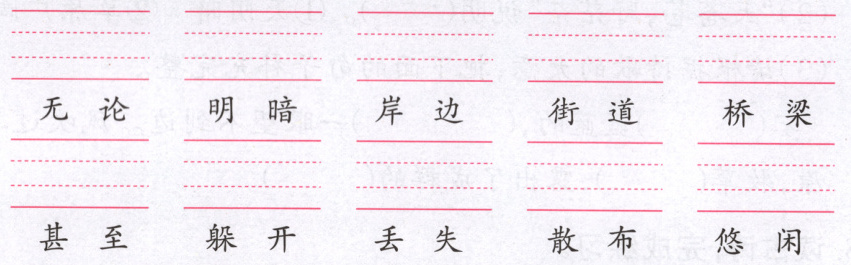 无论 明暗 岸边 街道 桥梁
甚至 躲开 丢失 散布 悠闲